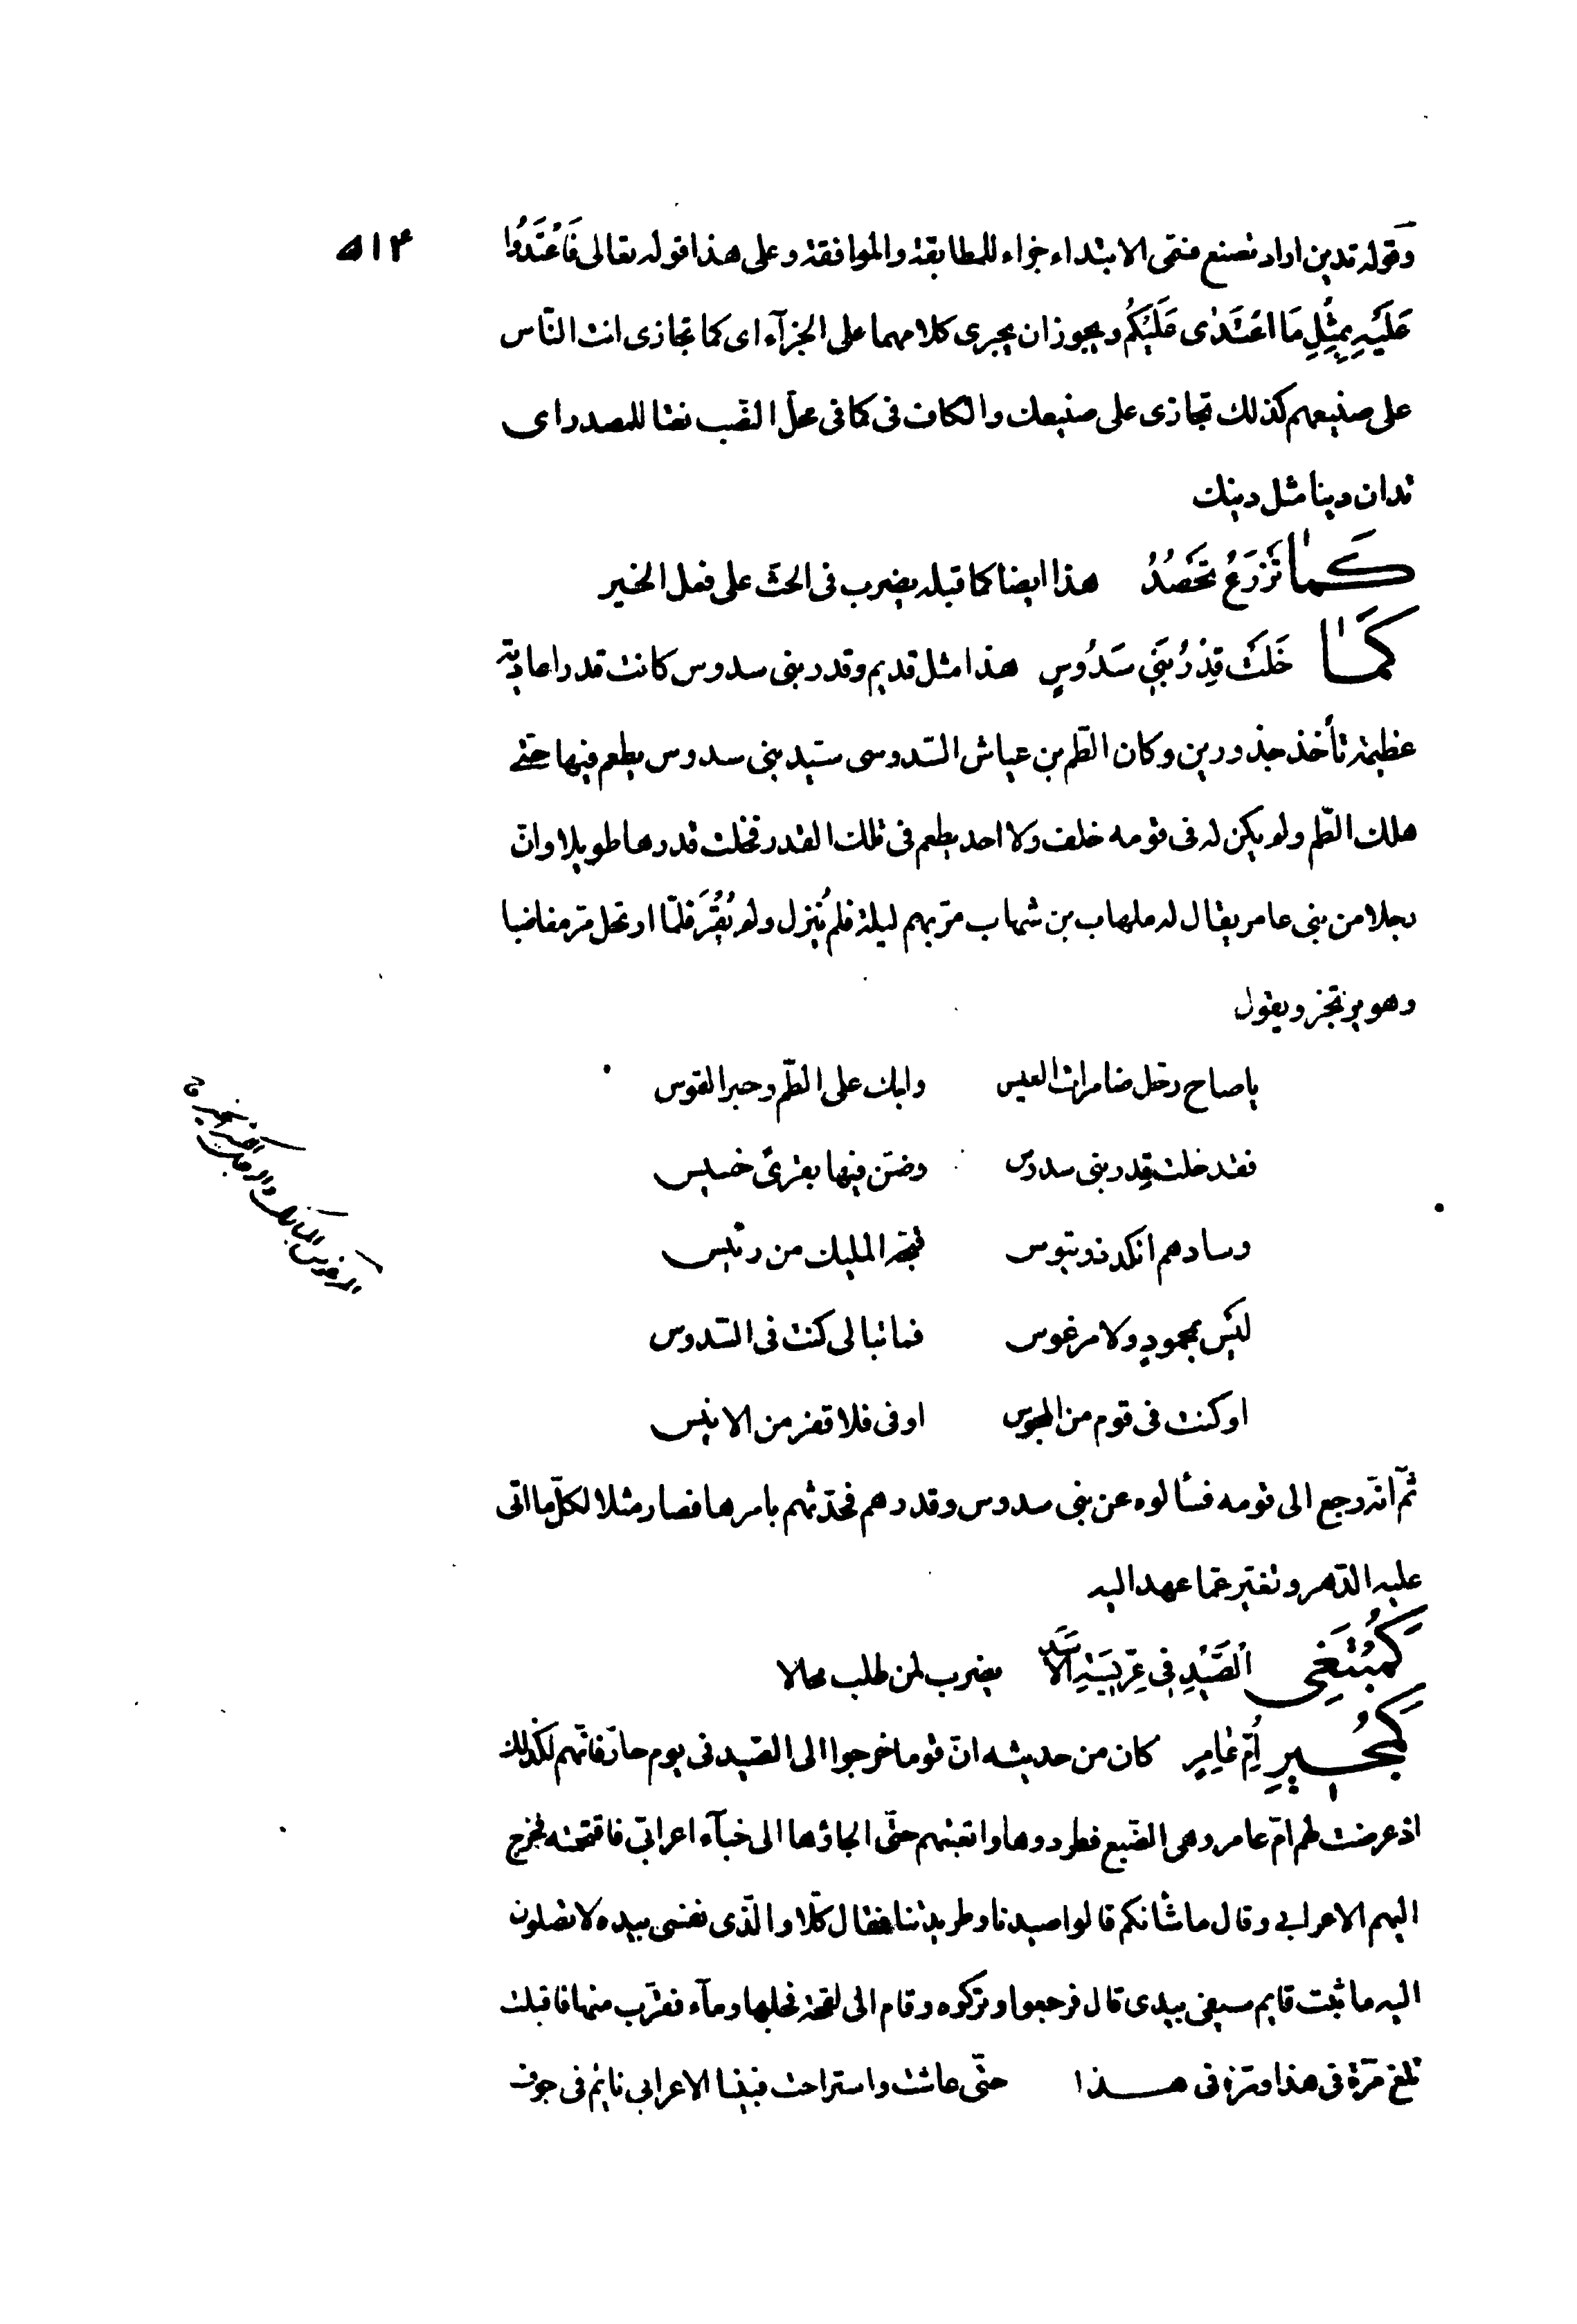 ٥١٤
وقوله تدين اراد تصنع فسمّى الابتداء جزاء للمطابقة والموافقة وعلى هذا قوله تعالى فَاعْتَدُوا
عَلَيْهِ بِمِثْلِ مَا اعْتَدٰى عَلَيْكُمْ ويجوز ان يجرى كلامهما على الجزآء اى كما تجازى انت النّاس
على صنيعهم كذلك تجازى على صنيعك والكاف فى كما فى محلّ النّصب نعتا للمصدر اى
تدان دينا مثل دينك
كَمٰا تَزْرَعُ تَحْصُدُ هذا ايضا كما قبله يضرب فى الحثّ على فعل الخير
كَمٰا خَلَتْ قِدْرُ بَنِي سَدُوسٍ هذا مثل قديم وقدر بنى سدوس كانت قدرا عاديّة
عظيمة تأخذ جذورين وكان الظم بن عياش السّدوسى سيّد بنى سدوس يطعم فيها حتّى
هلك الظّم ولم يكن له فى قومه خلف ولا احد يطعم فى تلك القدر فخلت قدرها طويلا وانّ
رجلا من بنى عامر يقال له ملهاب بن شهاب مرّ بهم ليلة فلم يُنزل ولم يُقْرَ فلمّا ارتحل مرّ مغاضبا
وهو يرتجز ويقول
ياصاح رحّل ضامرات العيس وابك على الظّم وحبر القوس
فقد خلت قِدر بنى سدوس وضنّ فيها بقرىً خسيس
وسادهم انكد ذو تيوس قبّحه المليك من رئيس
ليْس بمحمودٍ ولا مرغوس فما تبالى كنت فى السّدوس
او كنت فى قوم من المجوس او فى فلا قفر من الانيس
ثمّ انّه رجع الى قومه فسألوه عن بنى سدوس وقدرهم فحدّثهم بامرها فصار مثلا لكلّ ما اتى
عليه الدّهر وتغيّر عمّا عهد اليه
كَمُبْتَغِى الصَّيْدِ فِي عِرِّيسَةِ الْاَسَدِ يضرب لمن طلب محالا
كَمُجِيرِ اُمِّ عٰامِرٍ كان من حديثه انّ قوما خرجوا الى الصّيد فى يوم حارّ فانّهم لكذلك
اذ عرضت لهم امّ عامر وهى الضّبع فطردوها واتعبتهم حتّى الجاؤها الى خبآء اعرابىّ فاقتحمته فخرج
اليهم الاعرابى وقال ما شأنكم قالوا صيدنا وطريدتنا فقال كلّا والّذى نفسى بيده لا تصلون
اليه ما ثبت قايم سيفى بيدى قال فرجعوا وتركوه وقام الى لقحة فحلبها ومآء فقرّب منها فاقبلت
تلغ مرّة فى هذا ومرّة فى هذا حتّى عاشت واستراحت فبينا الاعرابى نايم فى جوف